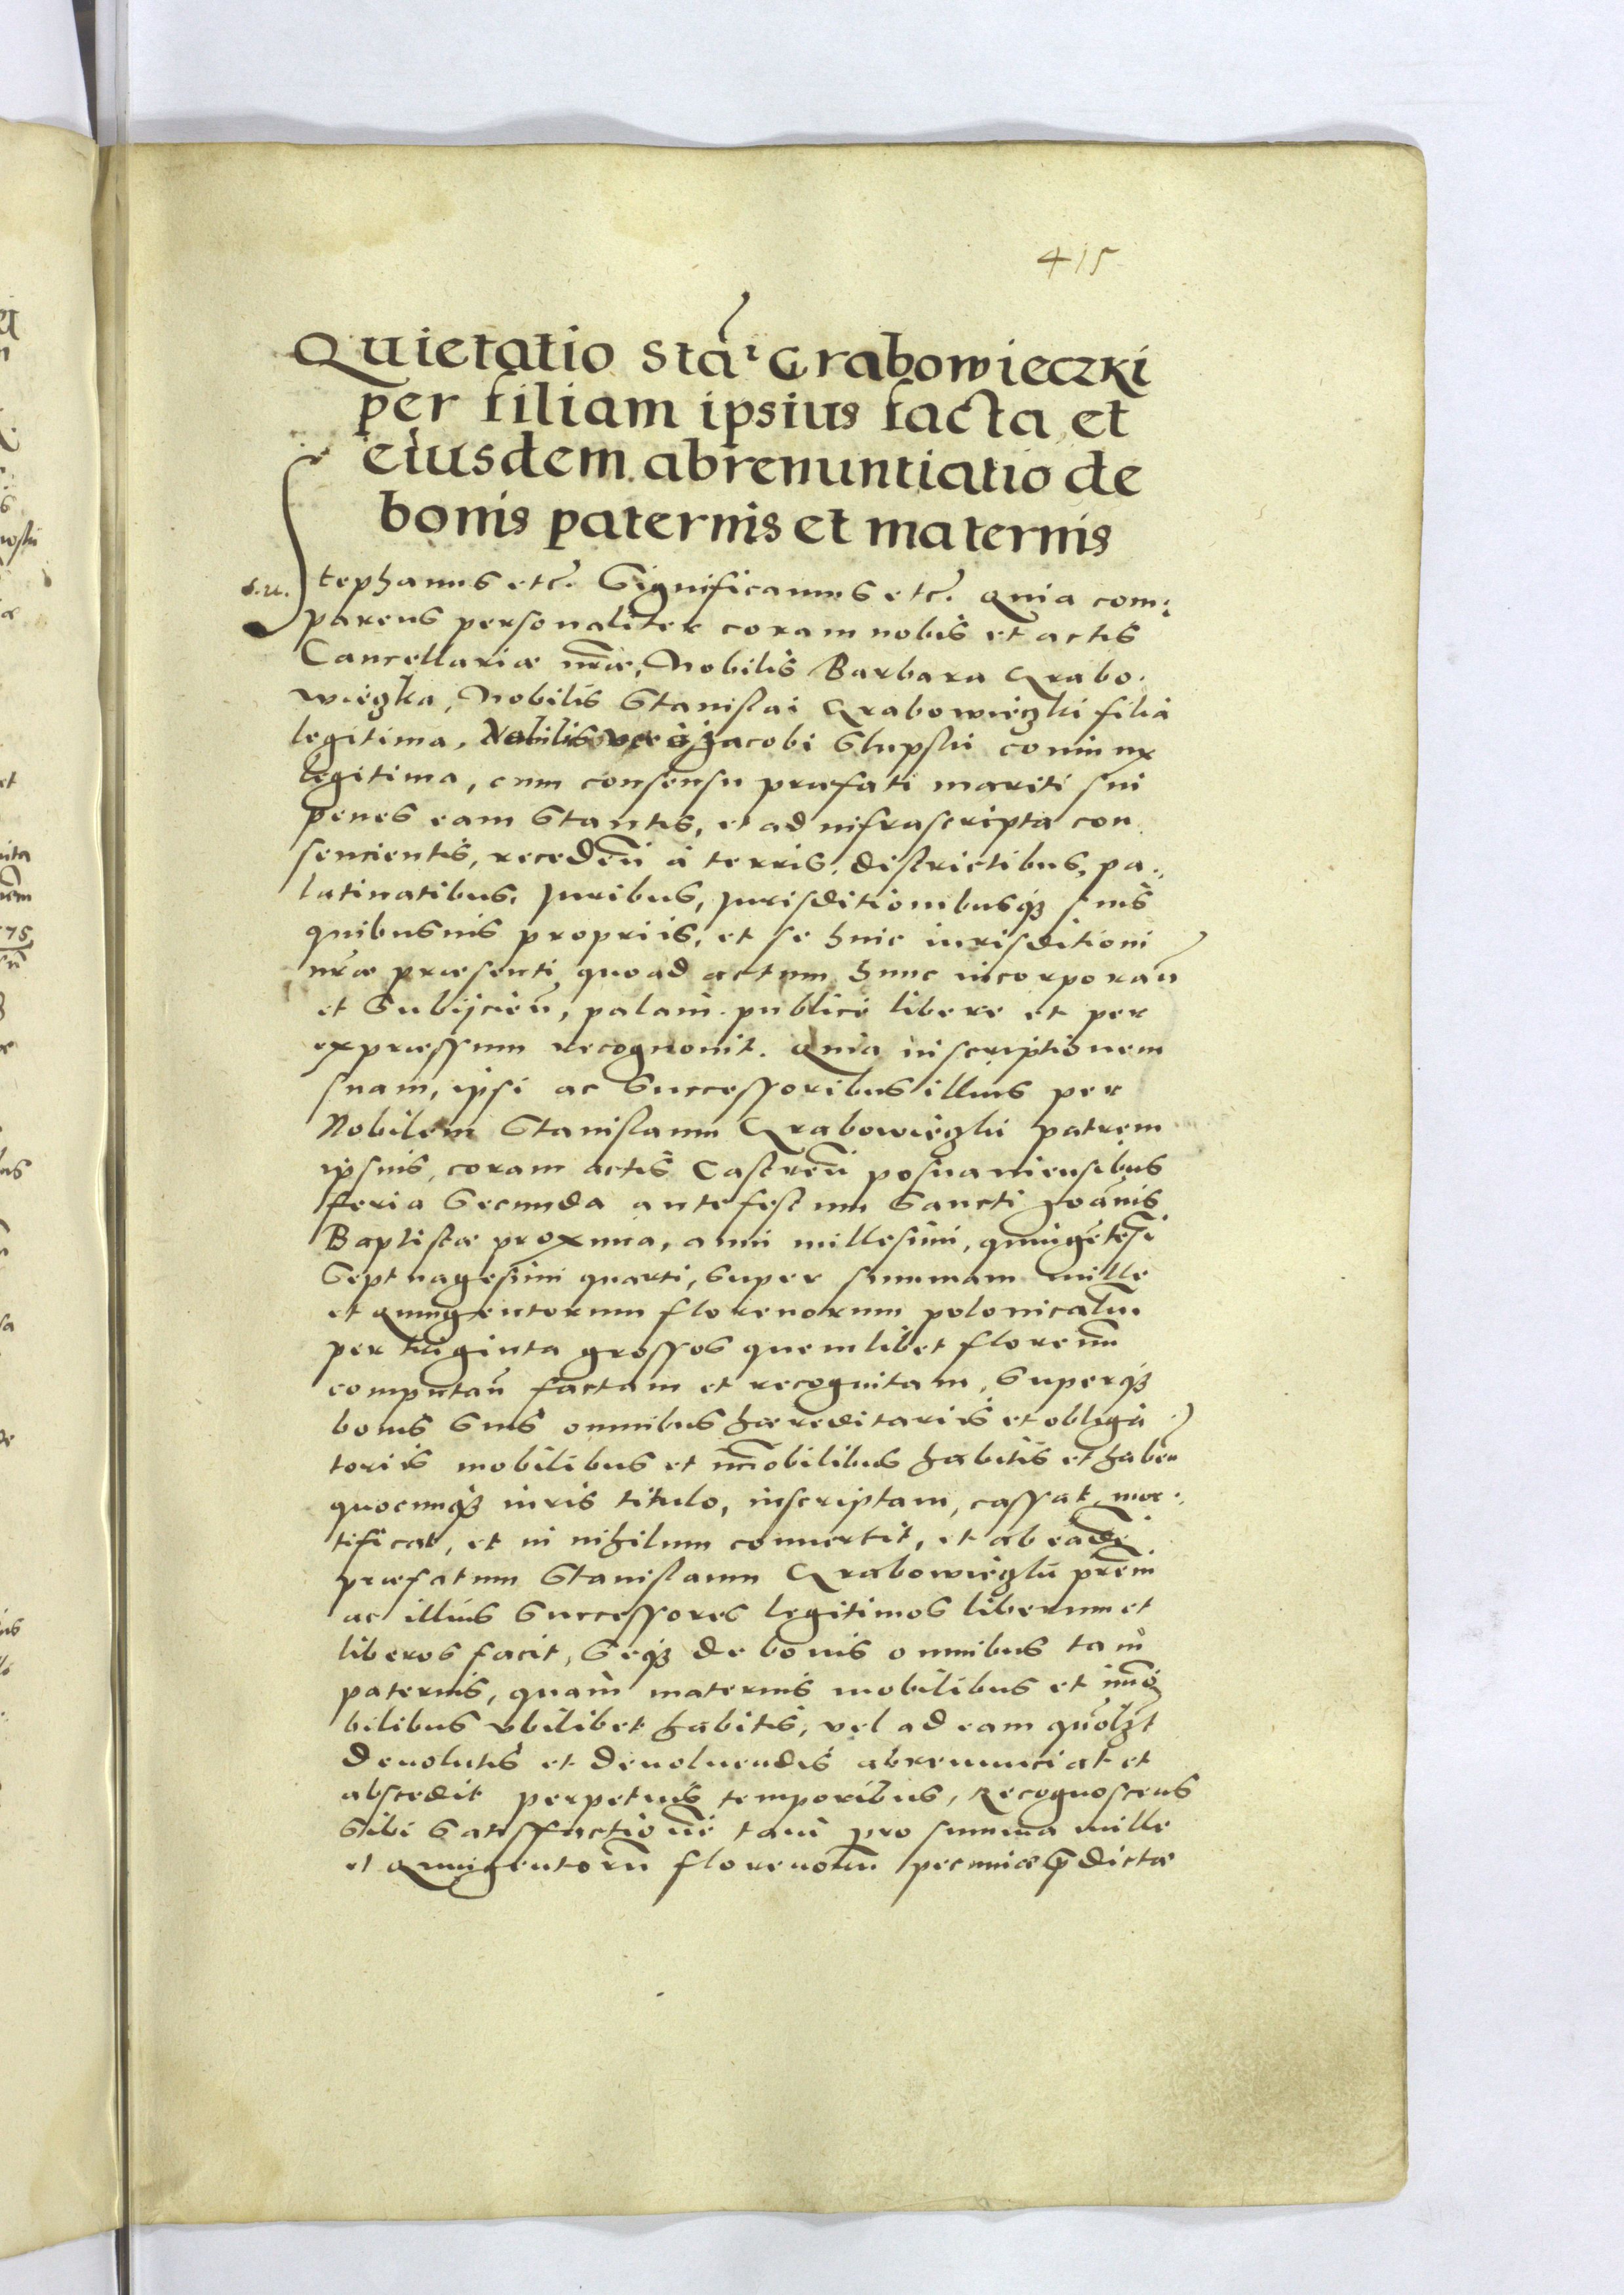 415
Quietatio Sta: Grabowieczki
per filiam ipsius facta et
eiusdem abrenuntiatio de
bonis paternis et maternis
Stephanus etc. Significamus etc. Quia com:
parens personaliter coram nobis et actis
Cancellariæ nr̃æ, Nobilis Barbara Grabo.
wieczka, Nobilis Stanislai Grabowieczki filia
legitima, Nobilis vero Jacobi Slupski coniunx
legitima, cum consensu præfati mariti sui
penes eam stantis, et ad infrascripta con
sencientis, recedeñ à terris, districtibus, pa.
latinatibus, Juribus, Jurisditionibusq3 suis
quibusuis propriis, et se huic iurisditioni
nr̃æ præsenti quoad actum hunc incorporañ
et Subijcieñ, palam publicè libere et per
expræssum recognouit. Quia inscriptionem
suam, ipsi ac Successoribus illius per
Nobilem Stanislaum Grabowieczki patrem
ipsius, coram actis Castreñ posnaniensibus
feria Secunda ante festum Sancti Joãnis
Baptistæ proxima, anni millesimi, quingẽtesĩ
Septuagesimi quarti, Super summam mille
et Quingentorum florenorum polonicaliũ
per triginta grossos quemlibet florenũ
computañ factam et recognitam, Superq3
bonis Suis omnibus hæreditariis et obliga
toriis mobilibus et im̃obilibus habitis et habeñ
quocunq3 iuris titulo, inscriptam, cassat, mor.
tificat, et in nihilum conuertit, et ab eadẽ
præfatum Stanislaum Grabowieczkũ pr̃em
ac illius Successores legitimos liberum et
liberos facit, Seq3 de bonis omnibus tam
paternis, quàm maternis mobilibus et im̃o
bilibus vbilibet habitis, vel ad eam quõlzt
deuolutis et deuoluendis abrenunciat et
abscedit perpetuis temporibus, Recognoscens
Sibi Satisfactionẽ tam pro summa mille
et Quingentorũ florenorũ pecuniæ p̃dictæ